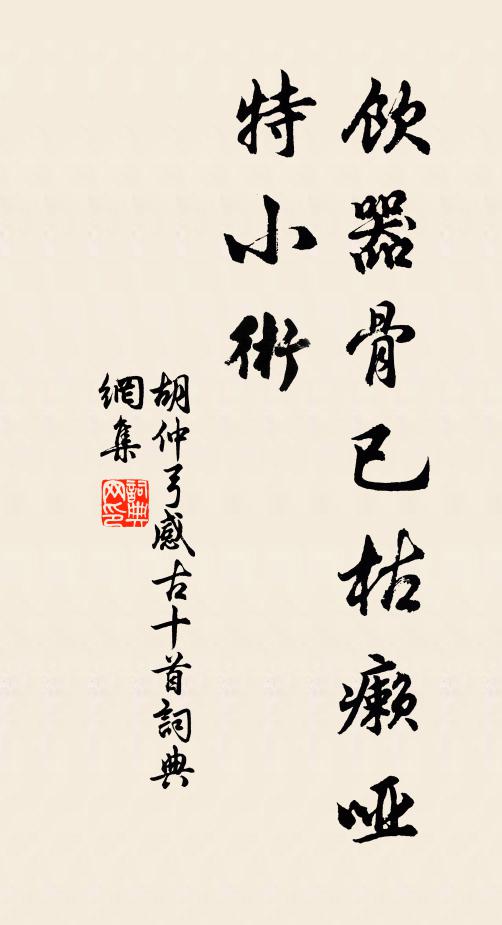 飲器骨已枯癩啞
特小術
胡仲弓感古十首詞典
網集
詞典
网印